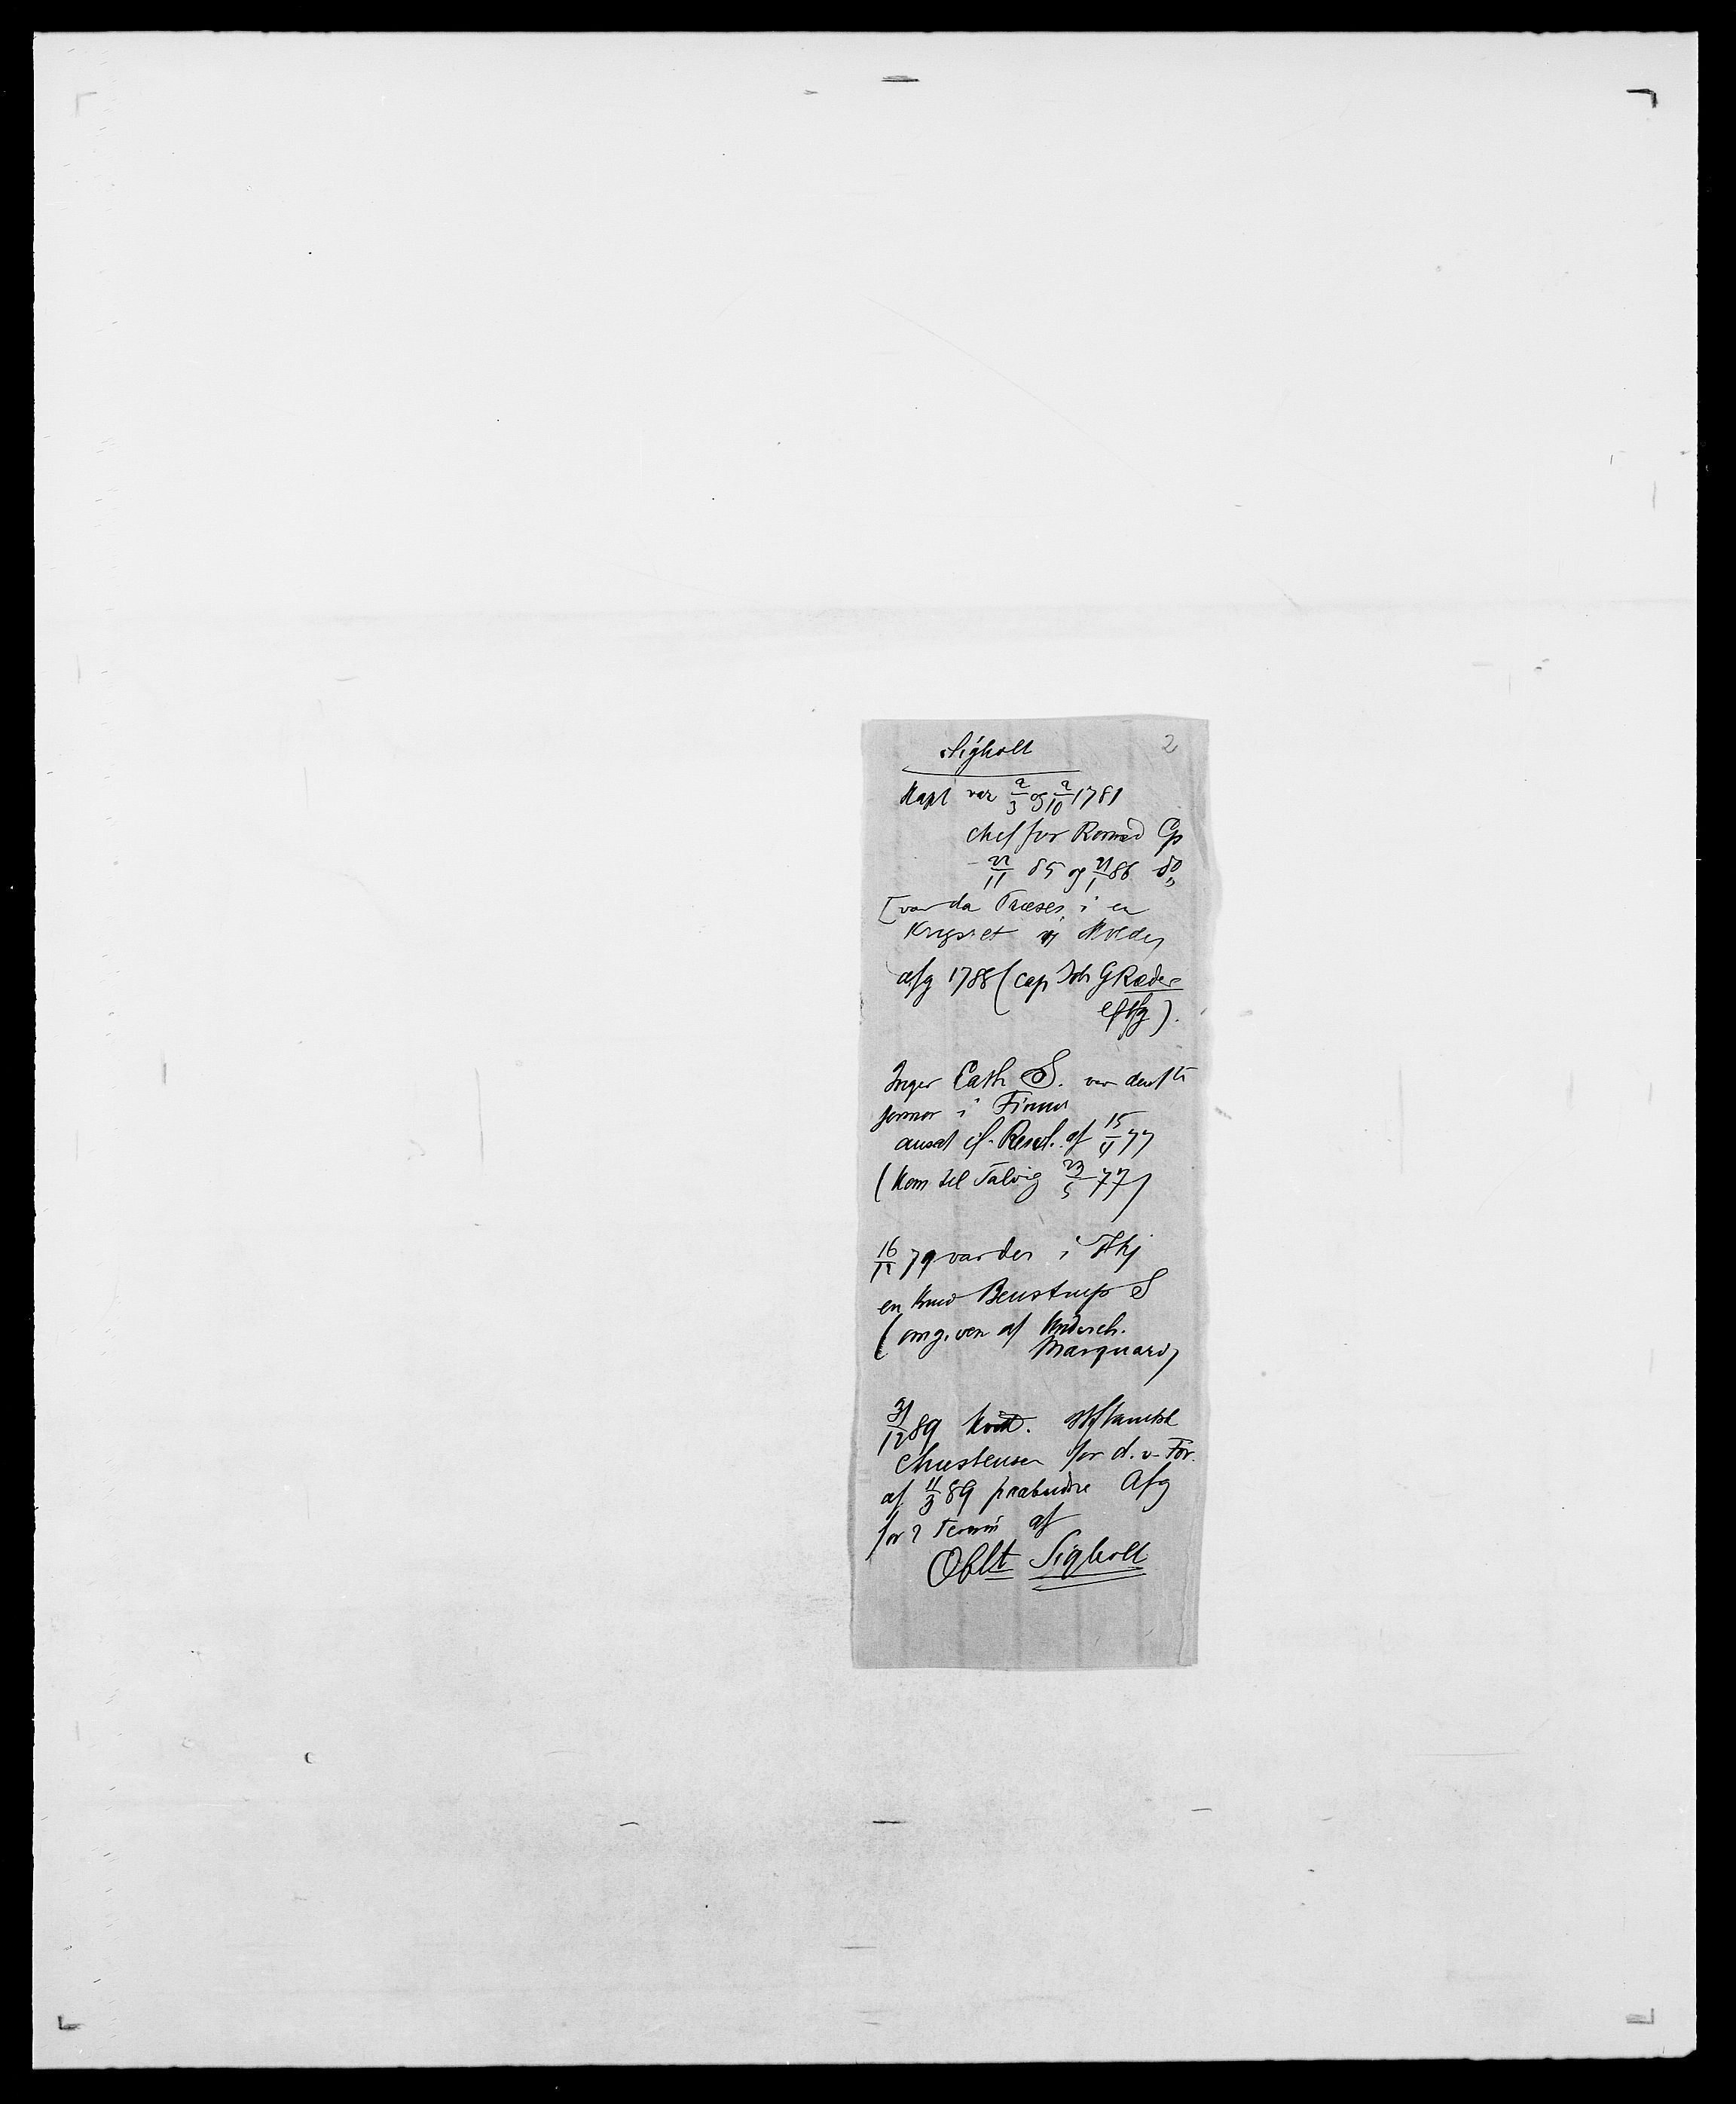 Sigholt 2
Kapt var 2/3 og 2/10 1781
chef for Romsd Cp
22/11 85 og 21/1 86 do
[var da Præses i en
Krigsret i Molde]
afg 1788 (cap Joh G Ræder
eftflg).
Inger Cath S. var den 1te
jormor i Finm
ansat if. Resol. af 15/4 77
(Kom til Talvig 23/5 77)
16/12 79 var der i Thj
en Knud Benstrup S
(omg. ven af Undersch.
Marquard)
31/12 89 kvitt. Stiftamtskr
Christensen for d. v. For.
af 11/3 89 paabudne Afg
for 2 Termin af
Oblt Sigholt